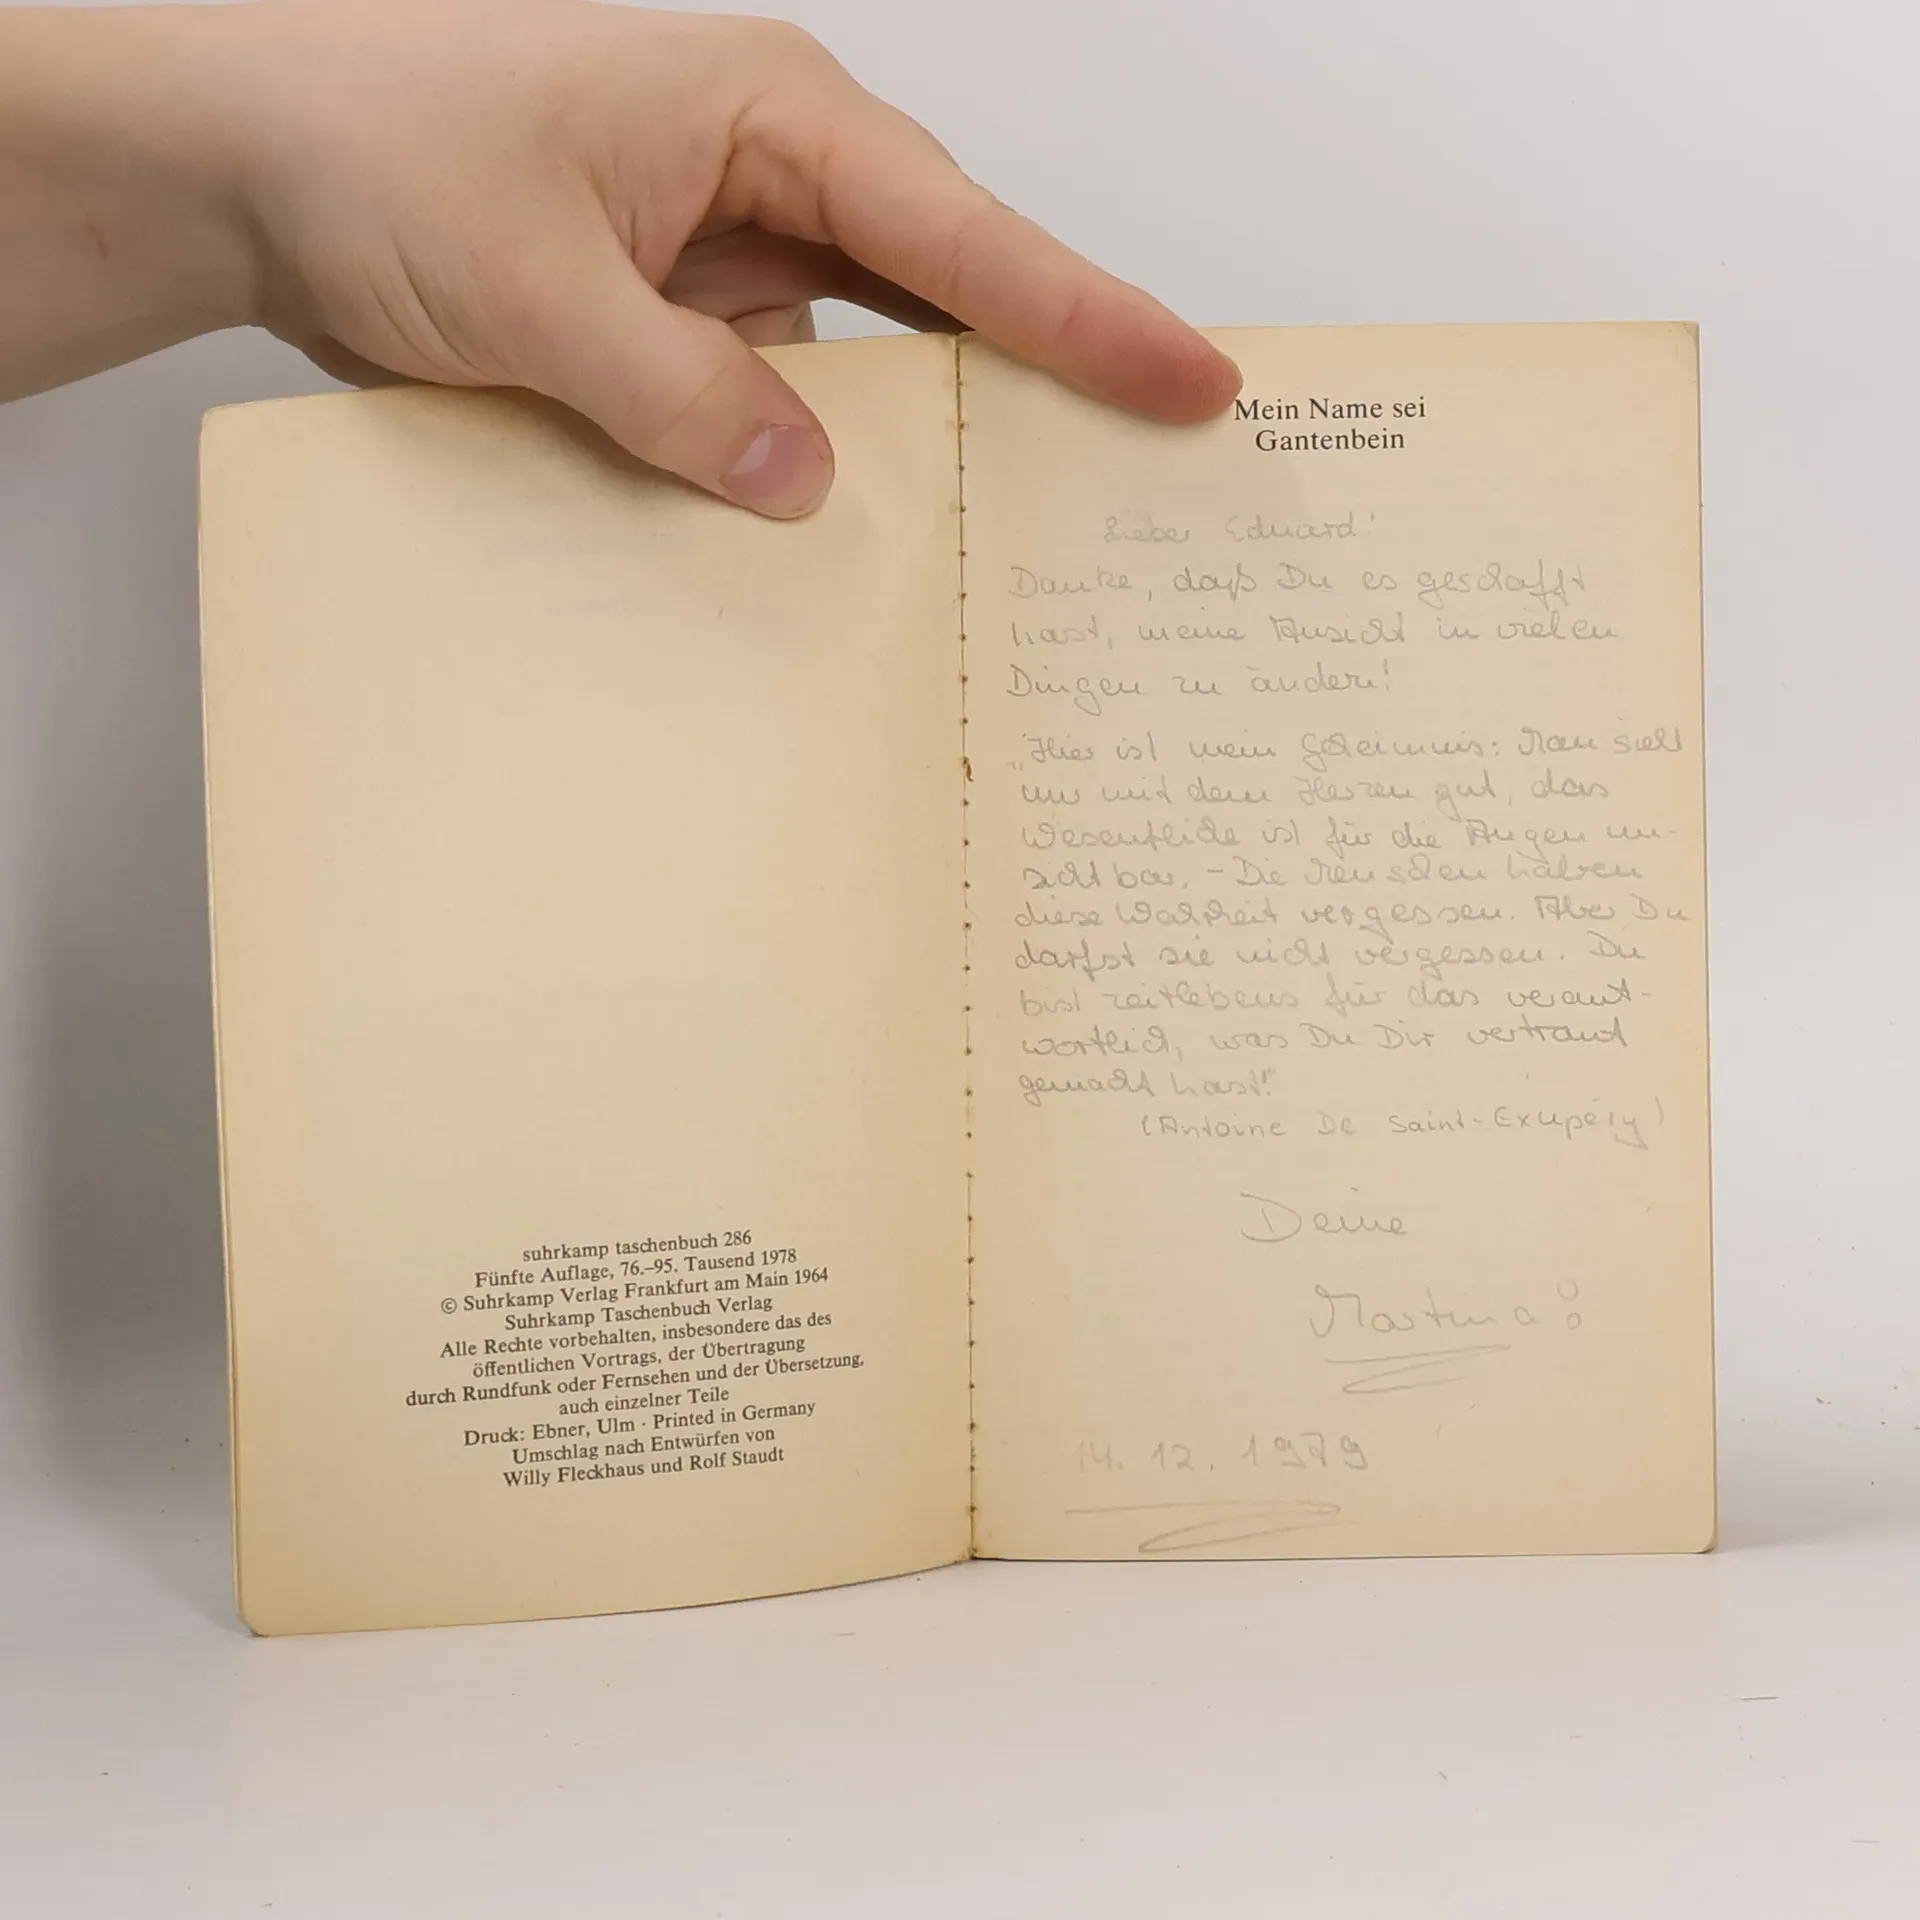 suhrkamp taschenbuch 286
Fünfte Auflage, 76.–95. Tausend 1978
© Suhrkamp Verlag Frankfurt am Main 1964
Suhrkamp Taschenbuch Verlag
Alle Rechte vorbehalten, insbesondere das des
öffentlichen Vortrags, der Übertragung
durch Rundfunk oder Fernsehen und der Übersetzung,
auch einzelner Teile
Druck: Ebner, Ulm · Printed in Germany
Umschlag nach Entwürfen von
Willy Fleckhaus und Rolf Staudt
Mein Name sei
Gantenbein
Lieber Eduard!
Danke, daß Du es geschafft
hast, meine Ansicht in vielen
Dingen zu ändern!
„Hier ist mein Geheimnis: Man sieht
nur mit dem Herzen gut, das
Wesentliche ist für die Augen un-
sichtbar. – Die Menschen haben
diese Wahrheit vergessen. Aber Du
darfst sie nicht vergessen. Du
bist zeitlebens für das verant-
wortlich, was Du Dir vertraut
gemacht hast!"
(Antoine De Saint-Exupéry)
Deine
Martina
14. 12. 1979